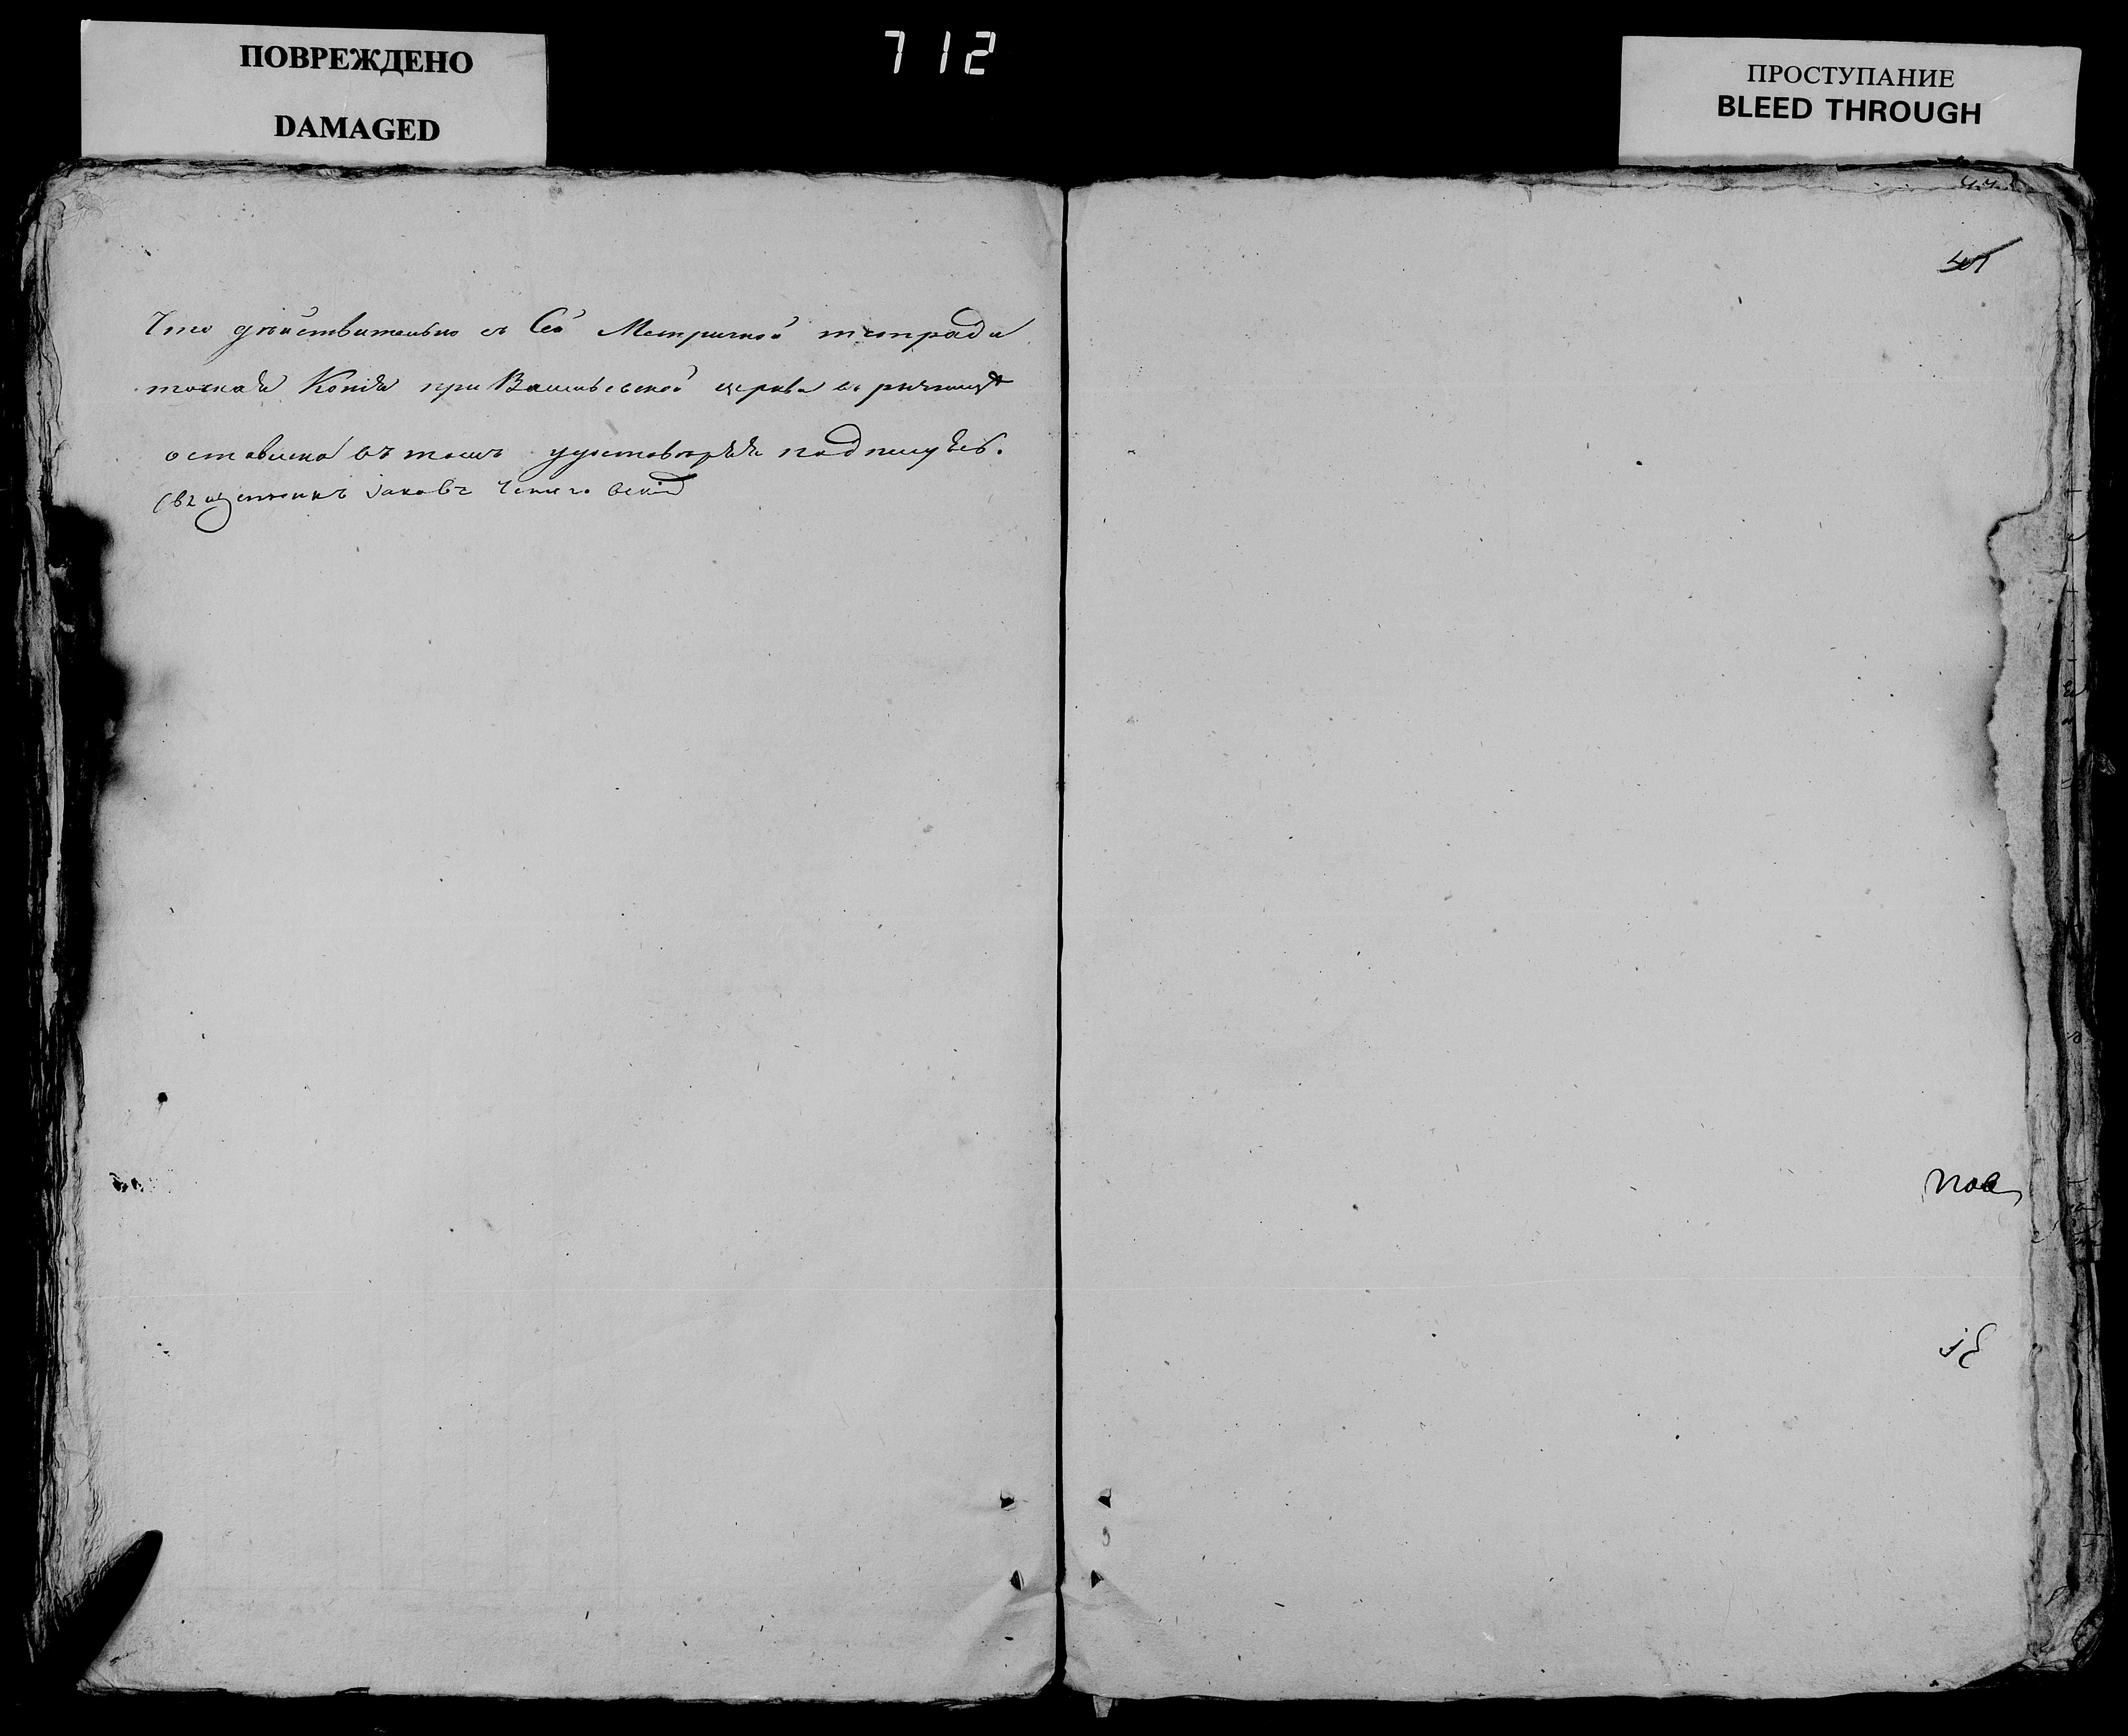 ПОВРЕЖДЕНО
DAMAGED
712
ПРОСТУПАНИЕ
BLEED THROUGH
Что дѣйствительно съ Сей Метричной тетради
точная Копія при Васильевской церкви въ ризницѣ
оставлена въ томъ удостовѣряя подпишусь.
Священникъ Іаковъ
пов